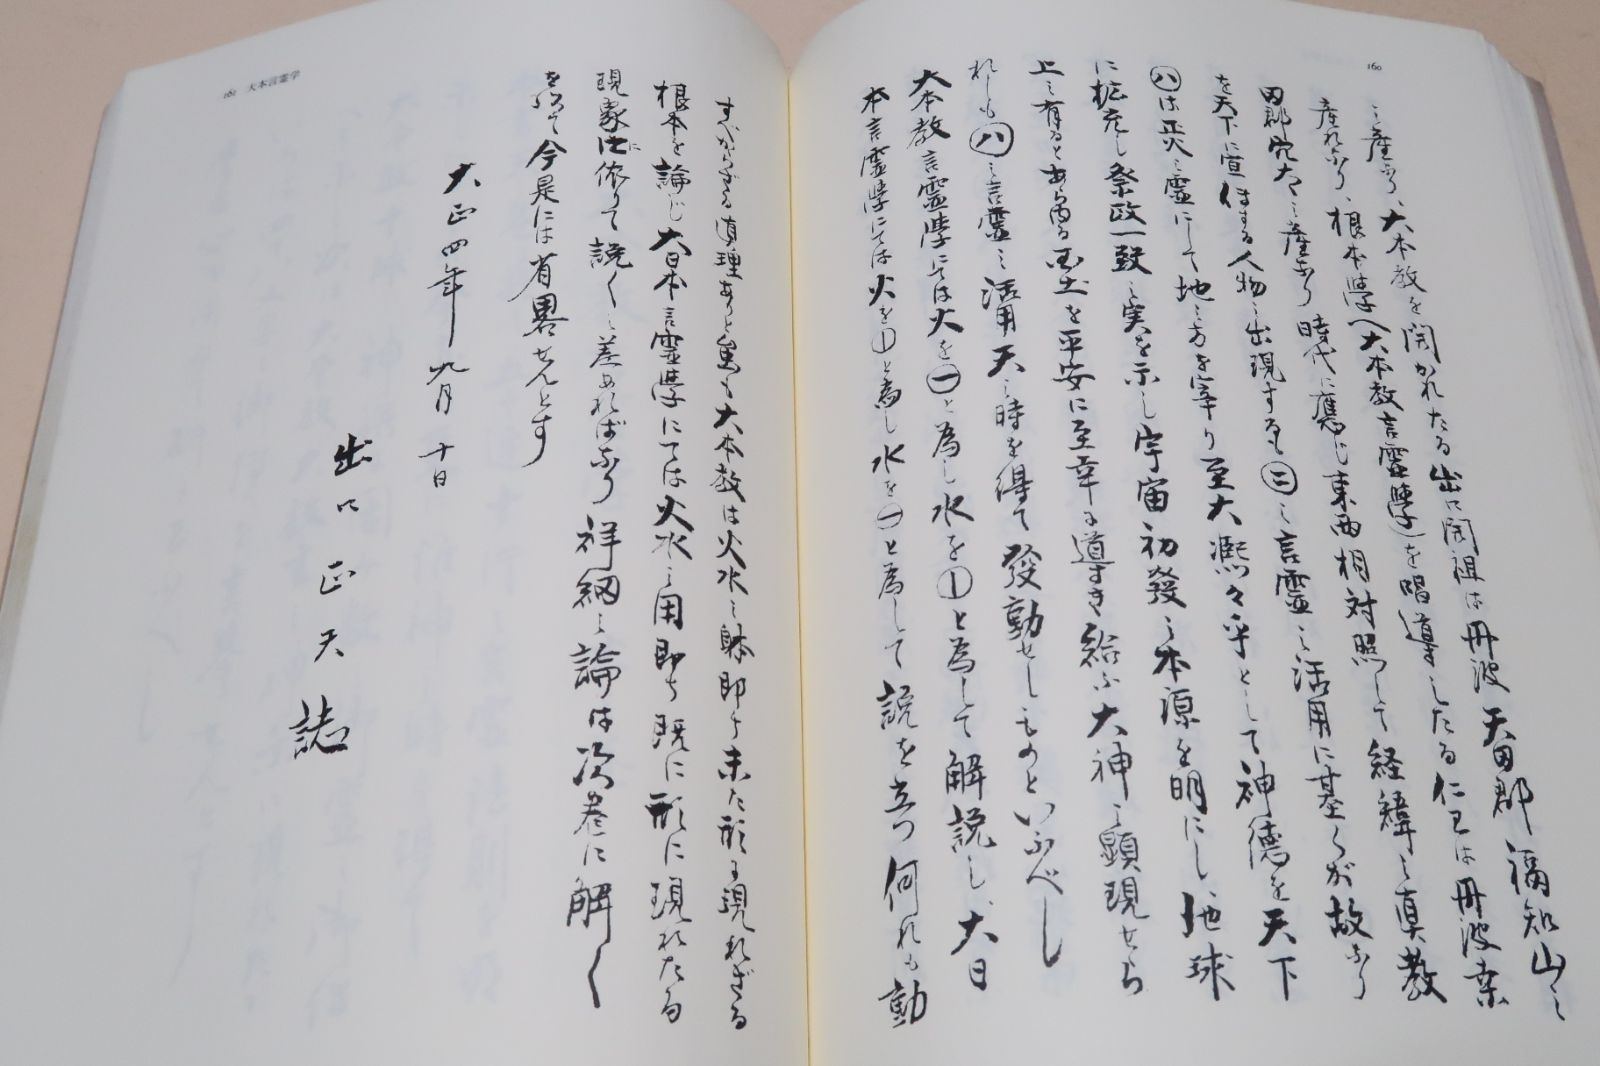 160
之産なり、大本教を開かれたる出口開祖は丹波天田郡福知山之
産れなり、根本学（大本教言霊学）を唱導したる仁王は丹波桑
田郡穴太之産なり時代に應じ東西相対照して経緯之真教
を天下に宣伝する人物之出現するも㊁之言霊之活用に基くが故なり
㋩は正火之霊にして地之方を宰り至大凞々乎として神徳を天下
に拡充し祭政一致之実を示し宇宙初發之本源を明にし、地球
上に有りとあらゆる国土を平安に至幸に導き給ふ大神之顕現せら
れしも㋩之言霊之活用天之時を得て發動せしものといふべし
大本教言霊学にては火を㊀と為し水を①と為して解説し、大日
本言霊学にては火を①と為し水を㊀と為して説を立つ何れも動
161 大本言霊学
すべからざる真理ありと虽も大本教は火水之躰即ち未た形に現れざる
根本を論じ大日本言霊学にては火水之用即ち既に形に現れたる
現象に依りて説く之差あればなり祥細之論は次巻に解く
を以て今是には省畧せんとす
大正四年九月十日
出口正天誌